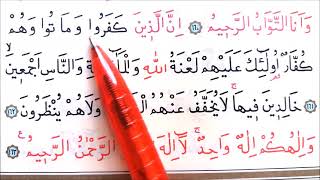 وَاَنَا التَّوَّابُ الرَّحٖيمُ ﴿١٦٠﴾ اِنَّ الَّذٖينَ كَفَرُوا وَمَاتُوا وَهُمْ
كُفَّارٌ اُولٰٓئِكَ عَلَيْهِمْ لَعْنَةُ اللّٰهِ وَالْمَلٰٓئِكَةِ وَالنَّاسِ اَجْمَعٖينَۙ
﴿١٦١﴾ خَالِدٖينَ فٖيهَاۚ لَا يُخَفَّفُ عَنْهُمُ وَلَا هُمْ يُنْظَرُونَ
﴿١٦٢﴾ وَاِلٰهُكُمْ اِلٰهٌ وَاحِدٌۚ لَٓا اِلٰهَ الرَّحْمٰنُ الرَّحٖيمُ